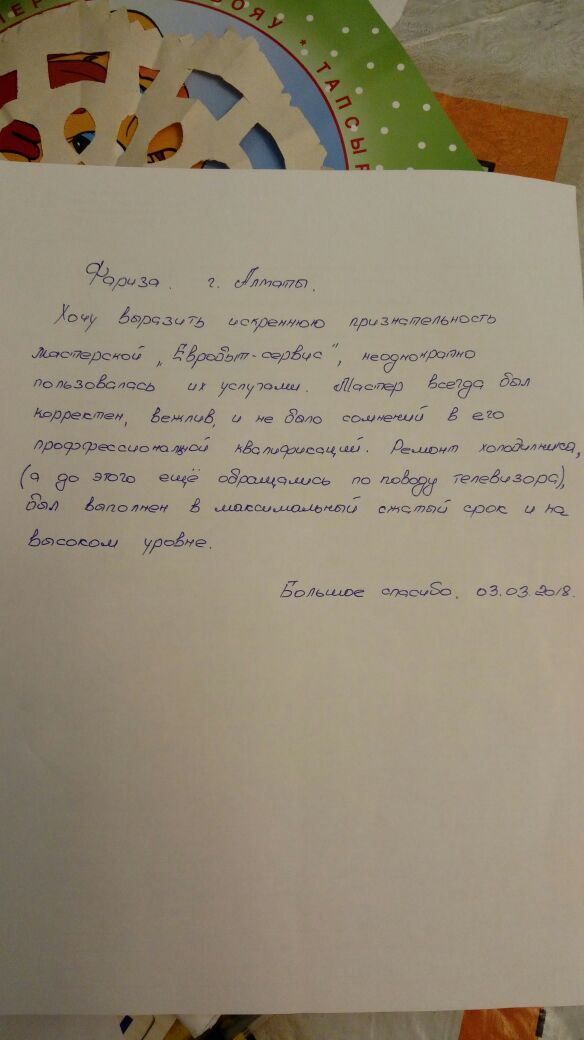 БОЯУ * ТАПСЫ
Фариза. г. Алматы.
Хочу выразить искреннюю признательность
мастерской „Евробыт-сервис", неоднократно
пользовалась их услугами. Мастер всегда был
корректен, вежлив, и не было сомнений в его
проффессиональной квалификаций. Ремонт холодильника,
(а до этого ещё обращались по поводу телевизора),
был выполнен в максимальный сжатый срок и на
высоком уровне.
Большое спасибо. 03.03.2018.